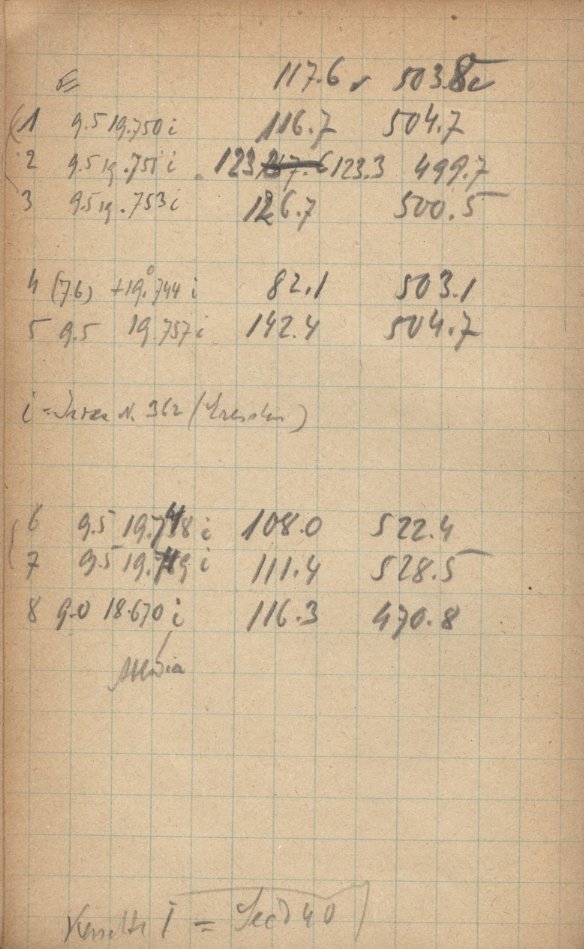 117.6 503.8
1 9.5 19.750 i 116.7 504.7
2 9.5 19.751 i 123.3 499.7
3 9.5 19.753 i 126.7 500.5
4 (76) +19°.744 i 82.1 503.1
5 9.5 19.757 i 142.4 504.7
i = N. 362
6 9.5 19.748 i 108.0 522.4
7 9.5 19.749 i 111.4 528.5
8 9.0 18.670 i 116.3 470.8
I = 40